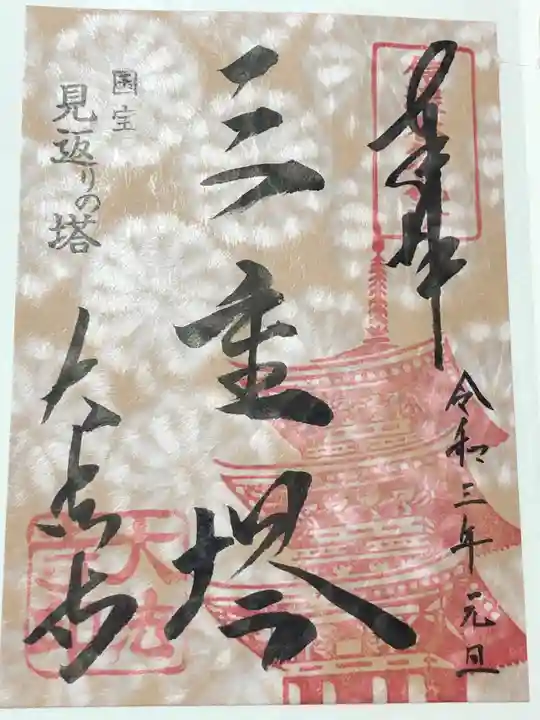 奉拝
令和三年 元旦
三重塔
国宝
見返りの塔
大法寺